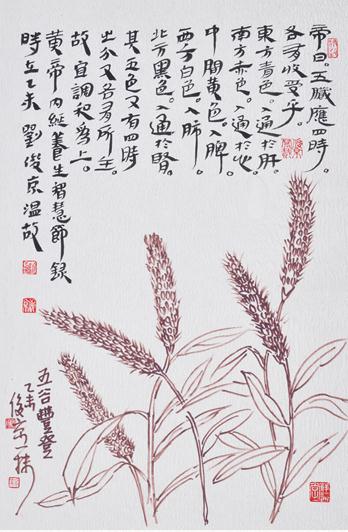 帝曰。五臟應四時。
各有收受乎。
東方青色。入通於肝。
南方赤色。入通於心
中間黄色。入脾。
西方白色。入肺。
北方黑色。入通於腎。
其五色又有四時
之分又各有所主。
故宜調和爲上。
黄帝内經養生智慧節録
時在乙未劉俊京温故
五谷豐登
乙未
俊京一揮